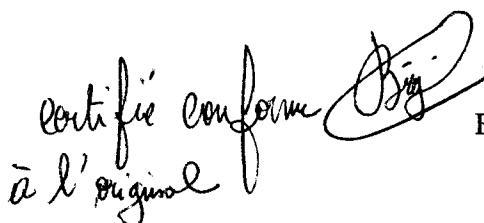 certifié conforme
à l'original